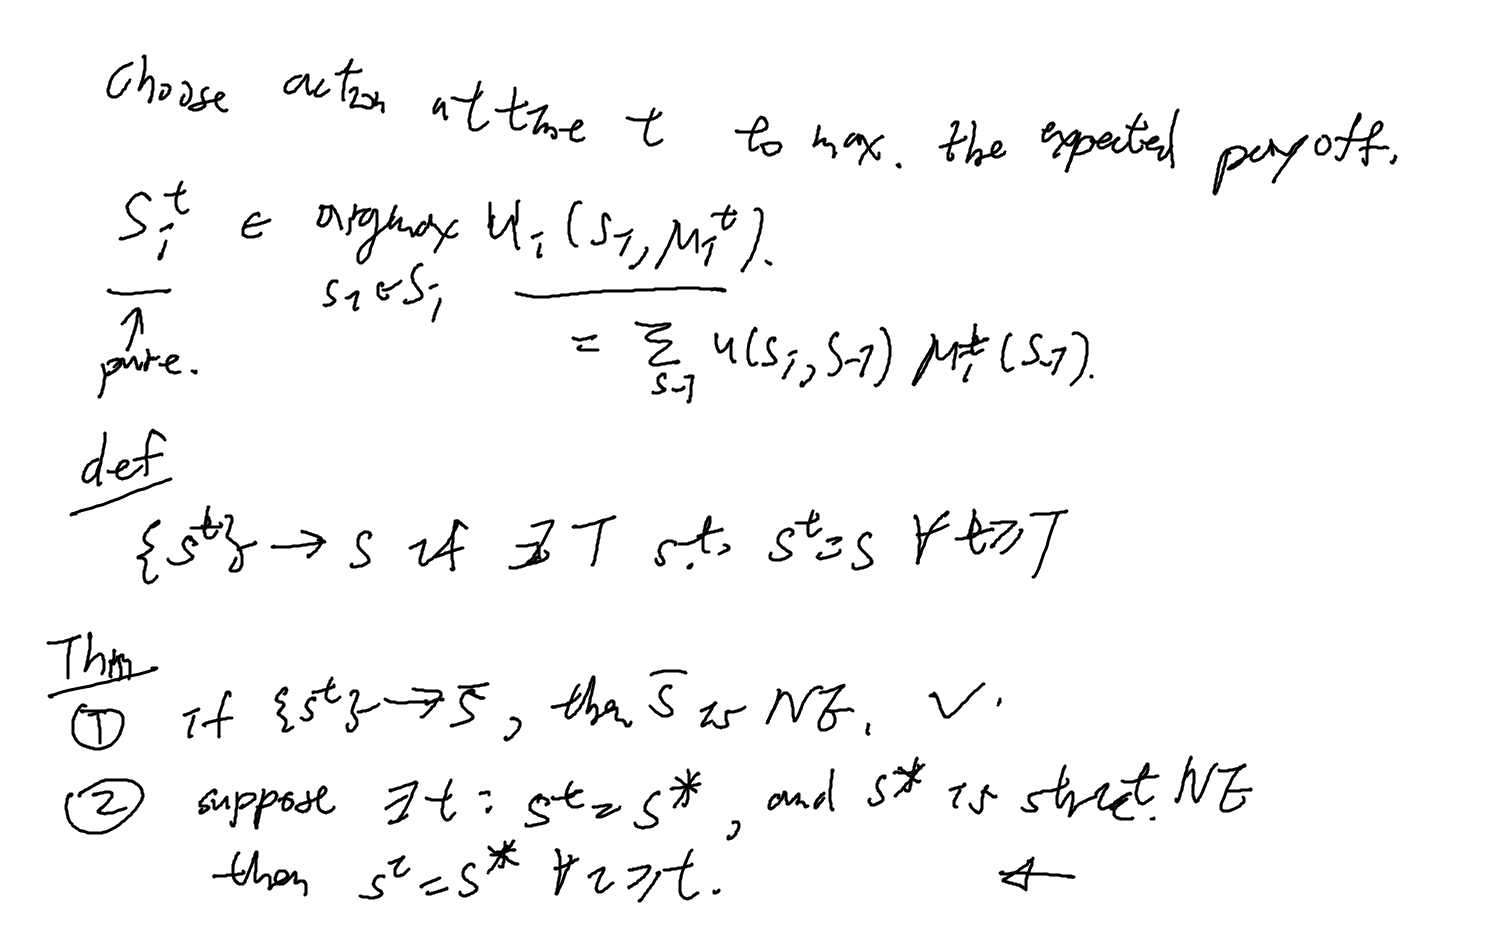 Choose action at time t to max. the expected payoff.
S_i^t ∈ argmax u_i (s_i, μ_i^t).
s_i ∈ S_i
↑
= Σ u(s_i, s_-i) μ_i^t (s_-i).
pure. s_-i
def
{s^t} → s if ∃ T s.t. s^t = s ∀ t ≥ T
Thm
① if {s^t} → s̄, then s̄ is NE. ✓.
② suppose ∃ t : s^t = s*, and s* is strict. NE
then s^τ = s* ∀ τ ≥ t. ←